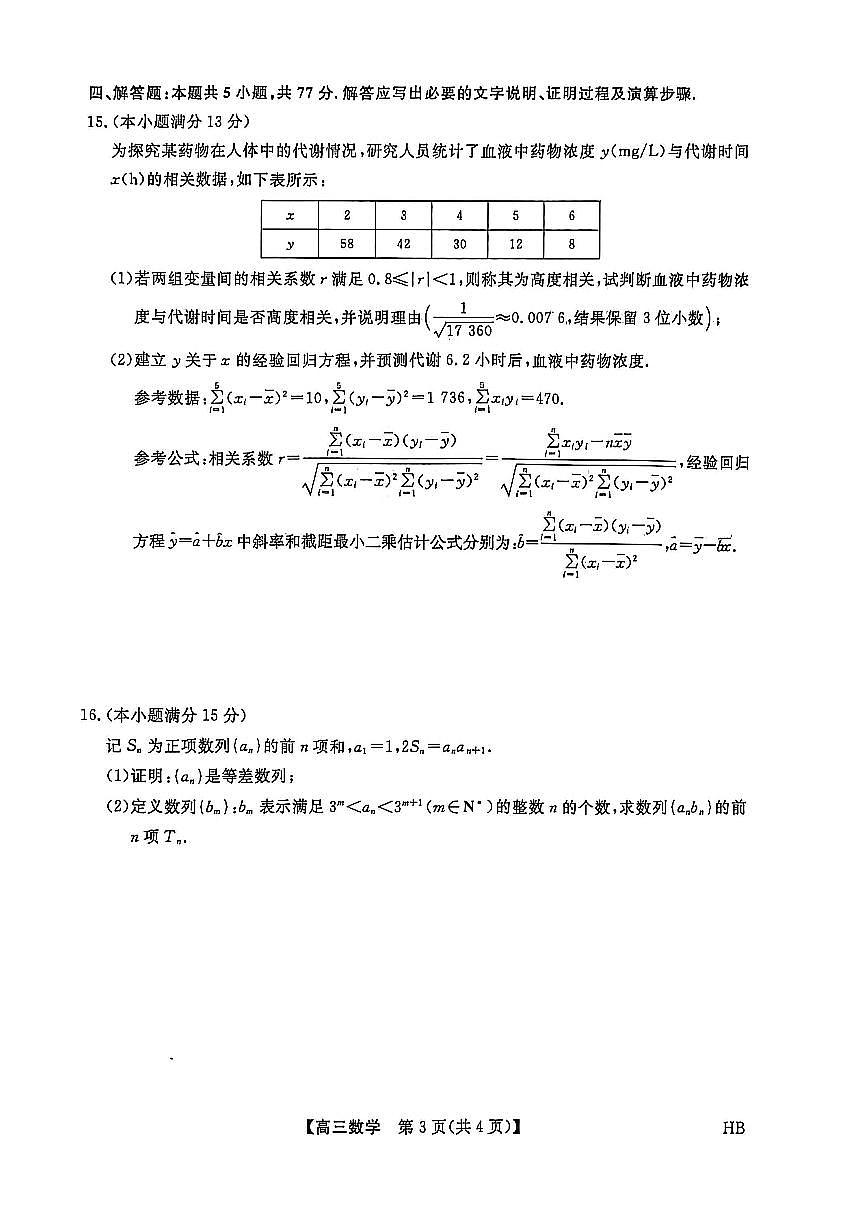 四、解答题:本题共 5 小题,共 77 分.解答应写出必要的文字说明、证明过程及演算步骤.
15.(本小题满分 13 分)
为探究某药物在人体中的代谢情况,研究人员统计了血液中药物浓度 y(mg/L)与代谢时间
x(h)的相关数据,如下表所示:
x 2 3 4 5 6
y 58 42 30 12 8
(1)若两组变量间的相关系数 r 满足 0.8≤|r|<1,则称其为高度相关,试判断血液中药物浓
度与代谢时间是否高度相关,并说明理由(1/√17 360≈0.007 6,结果保留 3 位小数);
(2)建立 y 关于 x 的经验回归方程,并预测代谢 6.2 小时后,血液中药物浓度.
参考数据:∑_{i=1}^{5}(x_i−x̄)²=10,∑_{i=1}^{5}(y_i−ȳ)²=1 736,∑_{i=1}^{5}x_iy_i=470.
参考公式:相关系数 r=∑_{i=1}^{n}(x_i−x̄)(y_i−ȳ)/√(∑_{i=1}^{n}(x_i−x̄)²∑_{i=1}^{n}(y_i−ȳ)²)=(∑_{i=1}^{n}x_iy_i−nx̄ȳ)/√(∑_{i=1}^{n}(x_i−x̄)²∑_{i=1}^{n}(y_i−ȳ)²),经验回归
方程 ŷ=â+b̂x 中斜率和截距最小二乘估计公式分别为:b̂=∑_{i=1}^{n}(x_i−x̄)(y_i−ȳ)/∑_{i=1}^{n}(x_i−x̄)²,â=ȳ−b̂x̄.
16.(本小题满分 15 分)
记 S_n 为正项数列{a_n}的前 n 项和,a_1=1,2S_n=a_na_{n+1}.
(1)证明:{a_n}是等差数列;
(2)定义数列{b_m}:b_m 表示满足 3^m<a_n<3^{m+1}(m∈N*)的整数 n 的个数,求数列{a_nb_n}的前
n 项 T_n.
【高三数学 第 3 页(共 4 页)】
HB